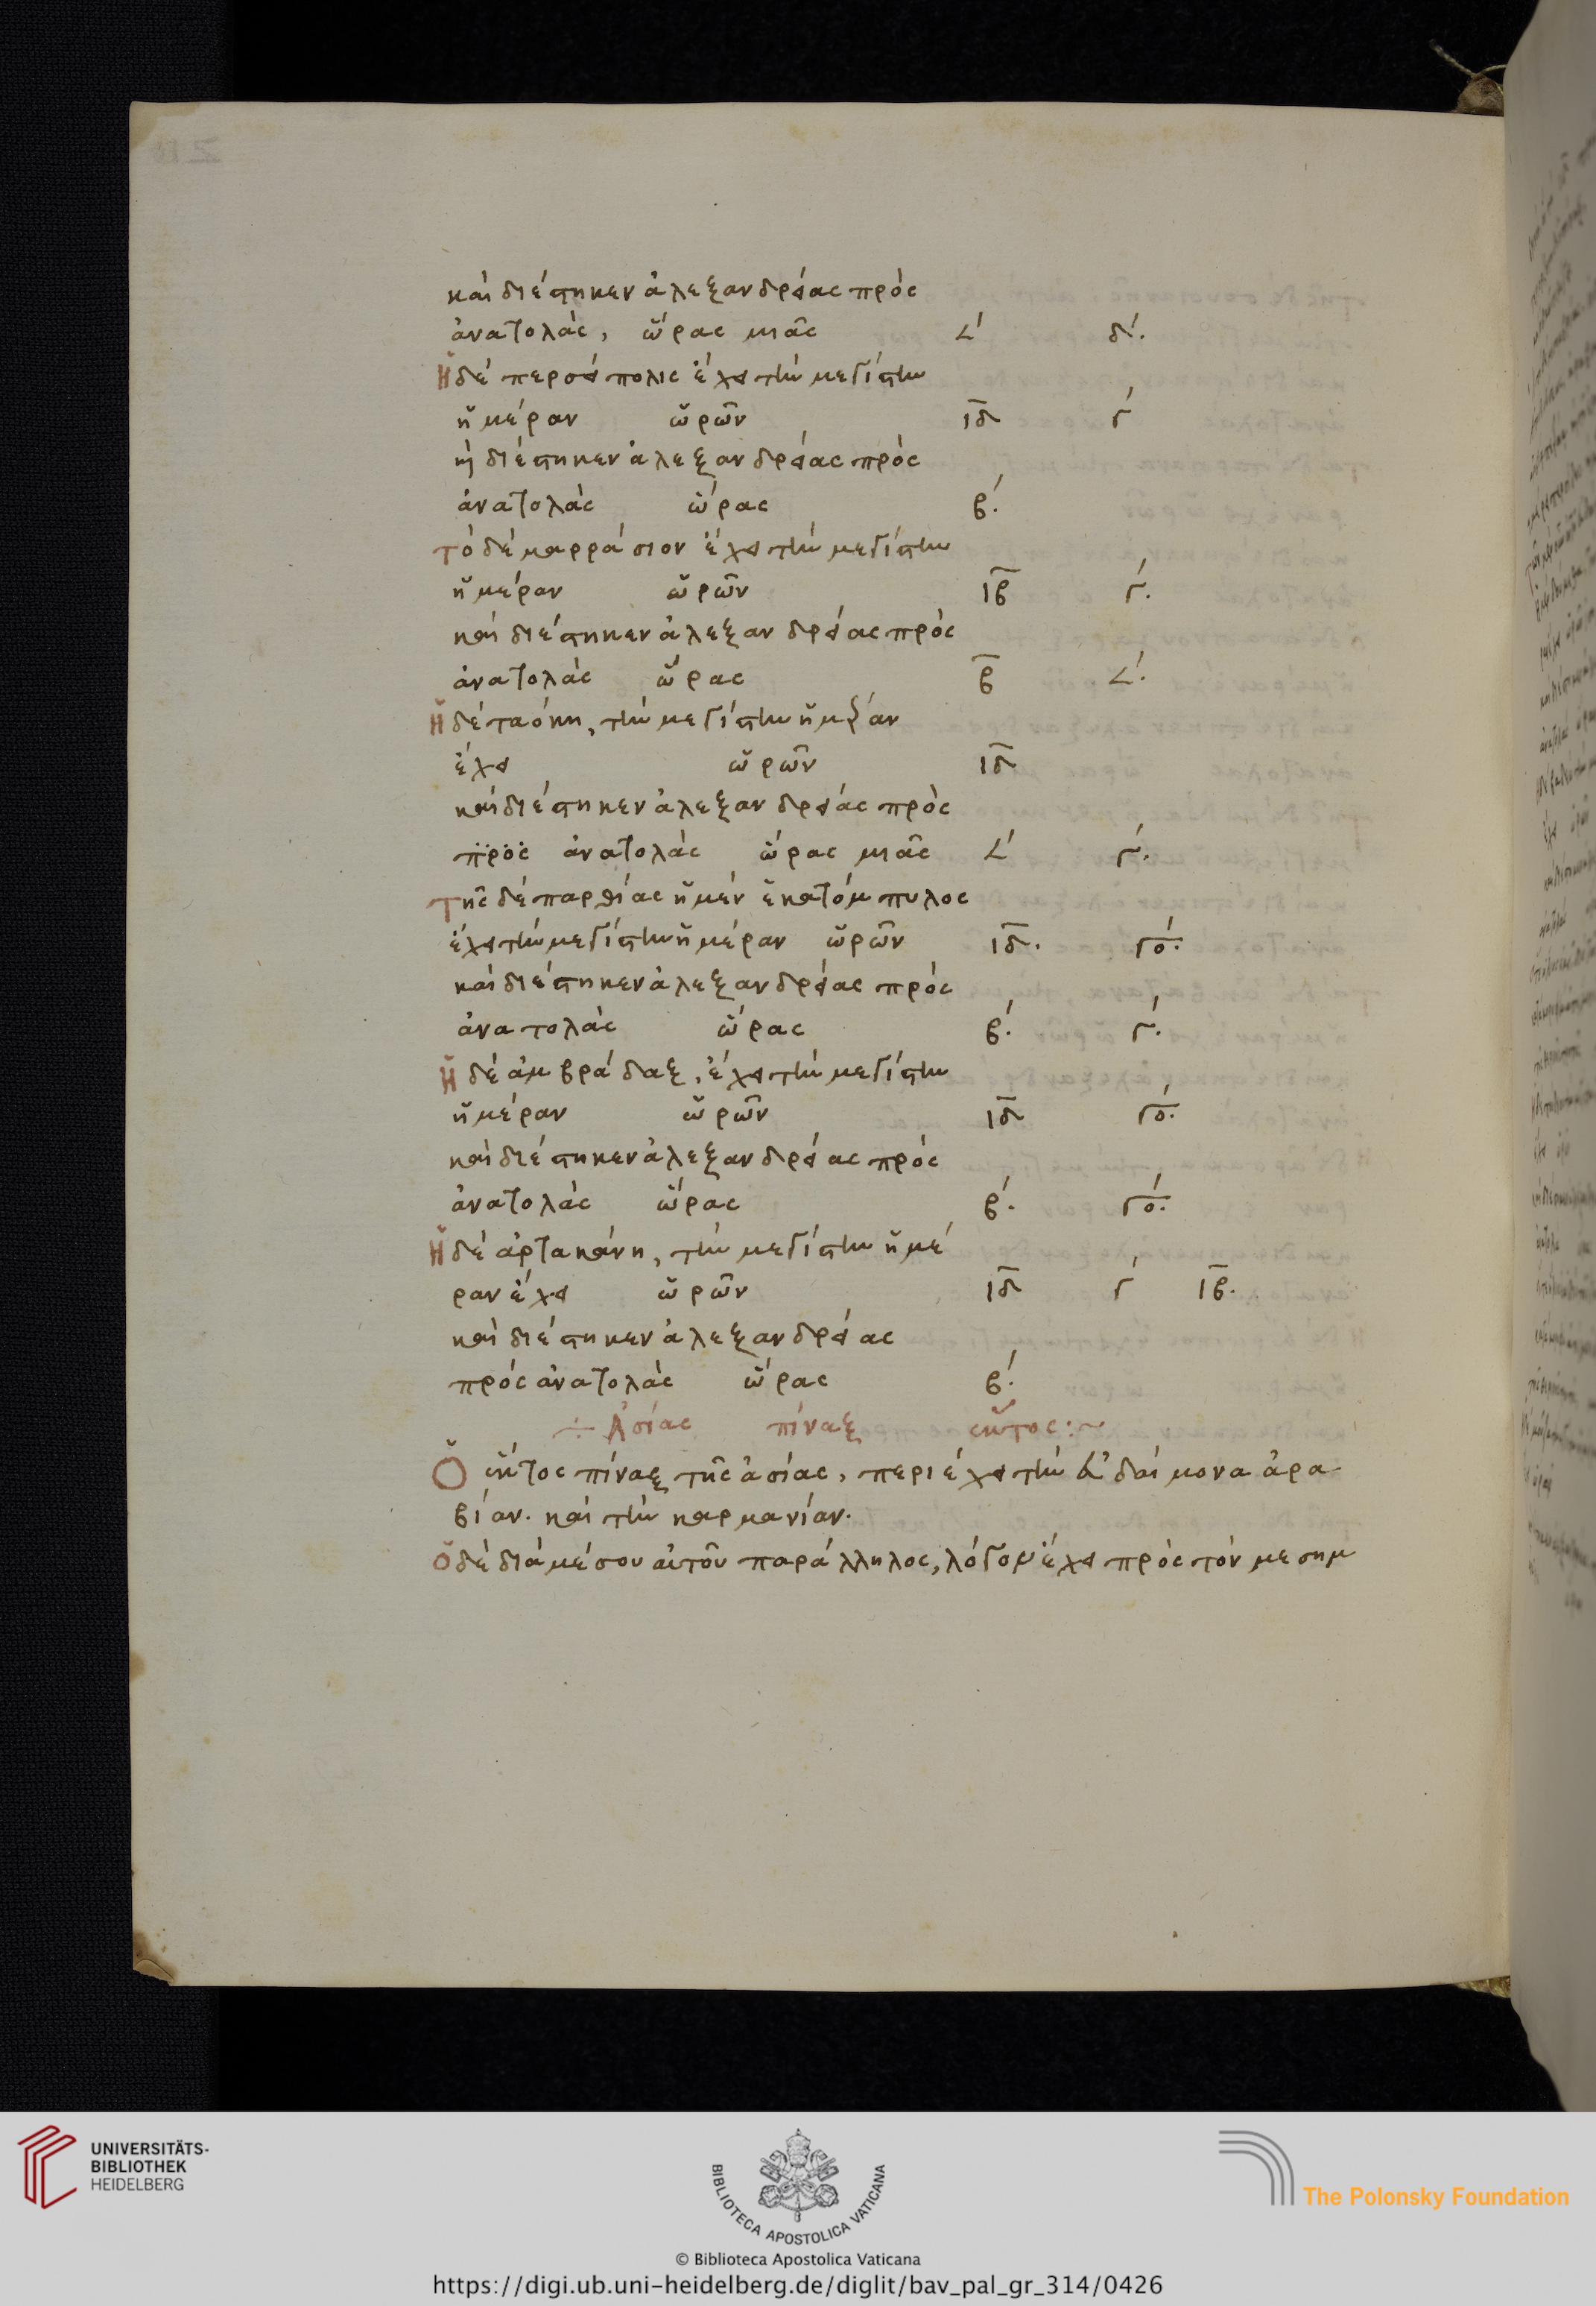 καὶ διέστηκεν ἀλεξανδρείας πρὸς
ἀνατολὰς, ὥρας μιᾶς 𐅵΄ δ΄.
Ἡ δὲ περσείπολις ἔχει τὴν μεγίστην
ἡμέραν ὡρῶν ιδ γ΄
κὴ διέστηκεν ἀλεξανδρείας πρὸς
ἀνατολὰς ὥρας β΄.
τὸ δὲ μαρράσιον ἔχει τὴν μεγίστην
ἡμέραν ὡρῶν ιβ γ΄.
καὶ διέστηκεν ἀλεξανδρείας πρὸς
ἀνατολὰς ὥρας β 𐅵΄.
Ἡ δὲ ταόκη, τὴν μεγίστην ἡμέραν
ἔχει ὡρῶν ιδ
καὶ διέστηκεν ἀλεξανδρείας πρὸς
πρὸς ἀνατολὰς ὥρας μιᾶς 𐅵΄ γ΄.
τῆς δὲ παρθίας ἡ μὲν ἑκατόμπυλος
ἔχει τὴν μεγίστην ἡμέραν ὡρῶν ιδ. γο΄.
καὶ διέστηκεν ἀλεξανδρείας πρὸς
ἀνατολὰς ὥρας β΄. γ΄.
Ἡ δὲ ἀμβρά δαξ, ἔχει τὴν μεγίστην
ἡμέραν ὡρῶν ιδ γο΄.
καὶ διέστηκεν ἀλεξανδρείας πρὸς
ἀνατολὰς ὥρας β΄. γο΄.
Ἡ δὲ ἀρτακάνη, τὴν μεγίστην ἡμέ
ραν ἔχει ὡρῶν ιδ γ΄ ιβ.
καὶ διέστηκεν ἀλεξανδρείας
πρὸς ἀνατολὰς ὥρας β΄.
÷ Ἀσίας πίναξ ἕκτος:~
Ὁ ἕκτος πίναξ τῆς ἀσίας, περιέχει τὴν εὐδαίμονα ἀρα
βίαν. καὶ τὴν καρμανίαν.
ὁ δὲ διὰ μέσου αὐτοῦ παράλληλος, λόγον ἔχει πρὸς τὸν μεσημ
UNIVERSITÄTS-
BIBLIOTHEK
HEIDELBERG
BIBLIOTECA APOSTOLICA VATICANA
The Polonsky Foundation
© Biblioteca Apostolica Vaticana
https://digi.ub.uni-heidelberg.de/diglit/bav_pal_gr_314/0426